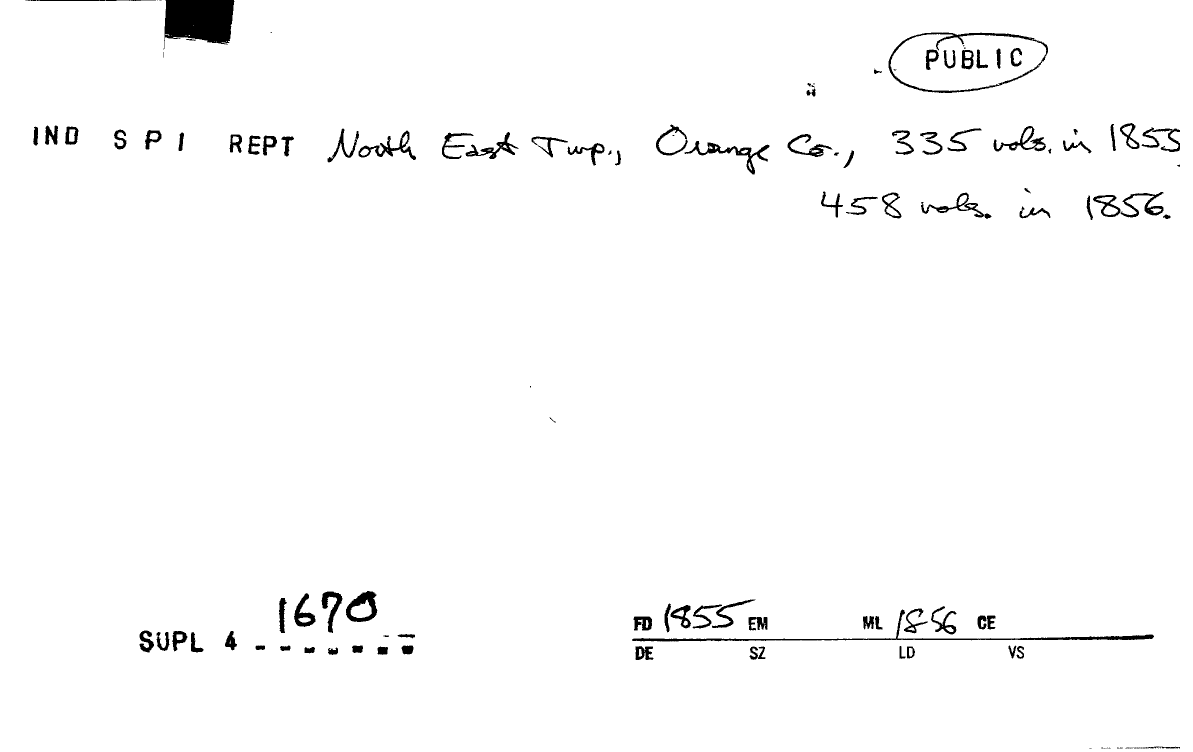 PUBLIC
IND S P I REPT North East Twp., Orange Co., 335 vols. in 1855,
458 vols. in 1856.
1670
SUPL 4 - - - - - - -
FD 1855 EM ML 1856 CE
DE SZ LD VS